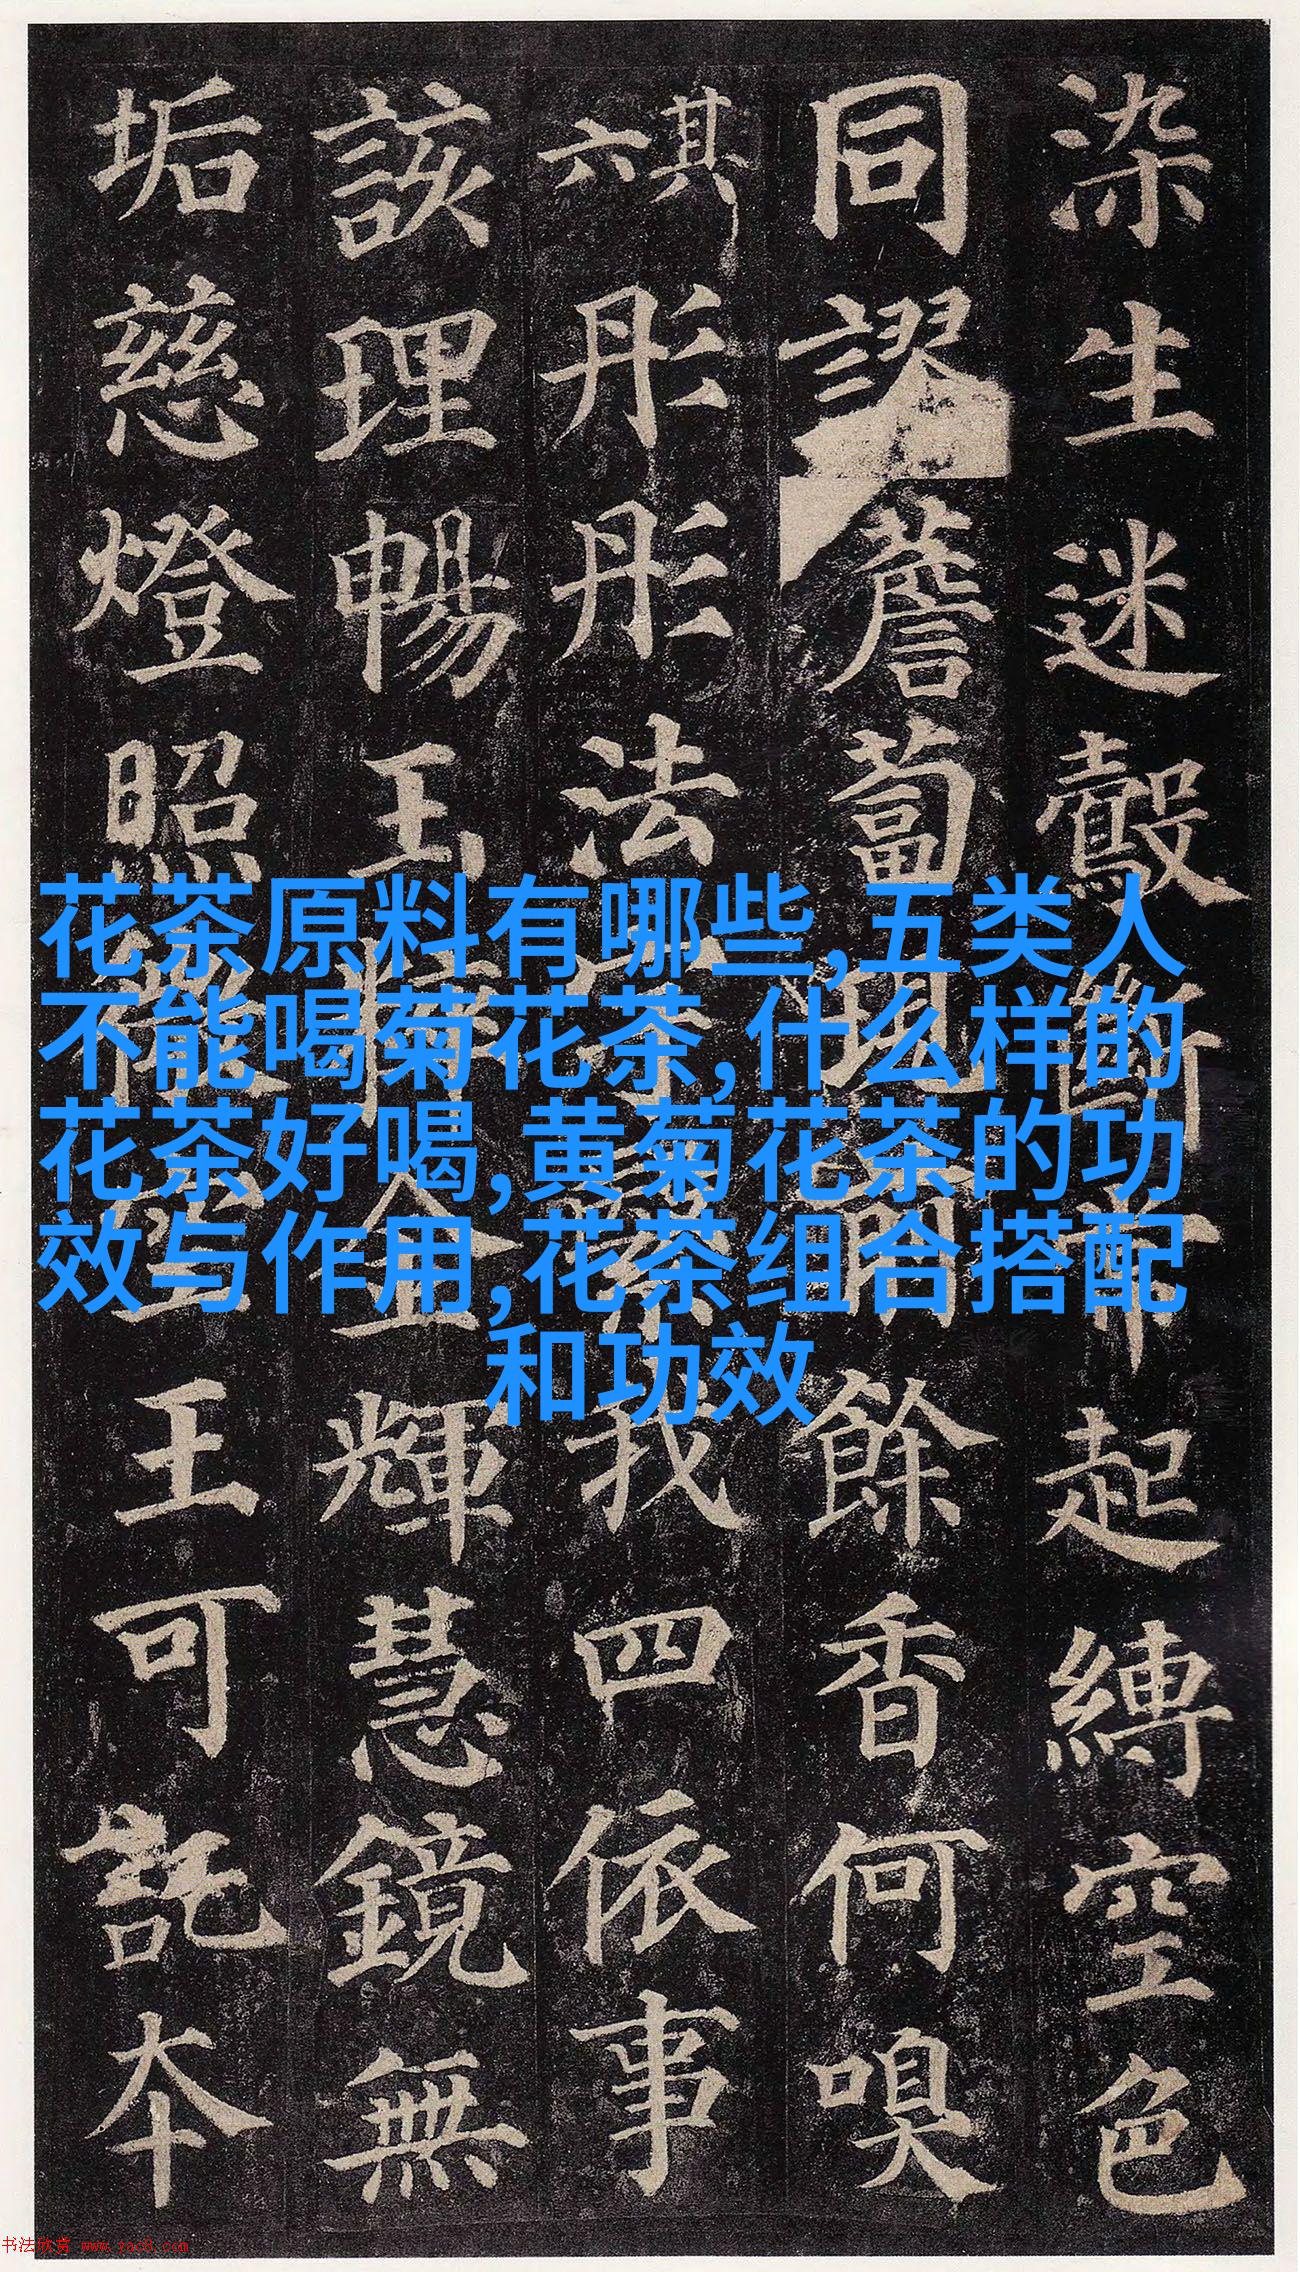 染生迷鷇斷常起縛空色
同謬薝蔔現前餘香何嗅
其六彤彤法宇繄我四依事
該理暢玉粹金輝慧鏡無
垢慈燈照微空王可託本
花茶原料有哪些,五类人
不能喝菊花茶,什么样的
花茶好喝,黄菊花茶的功
效与作用,花茶组合搭配
和功效
书法欣赏 www.yac8.com